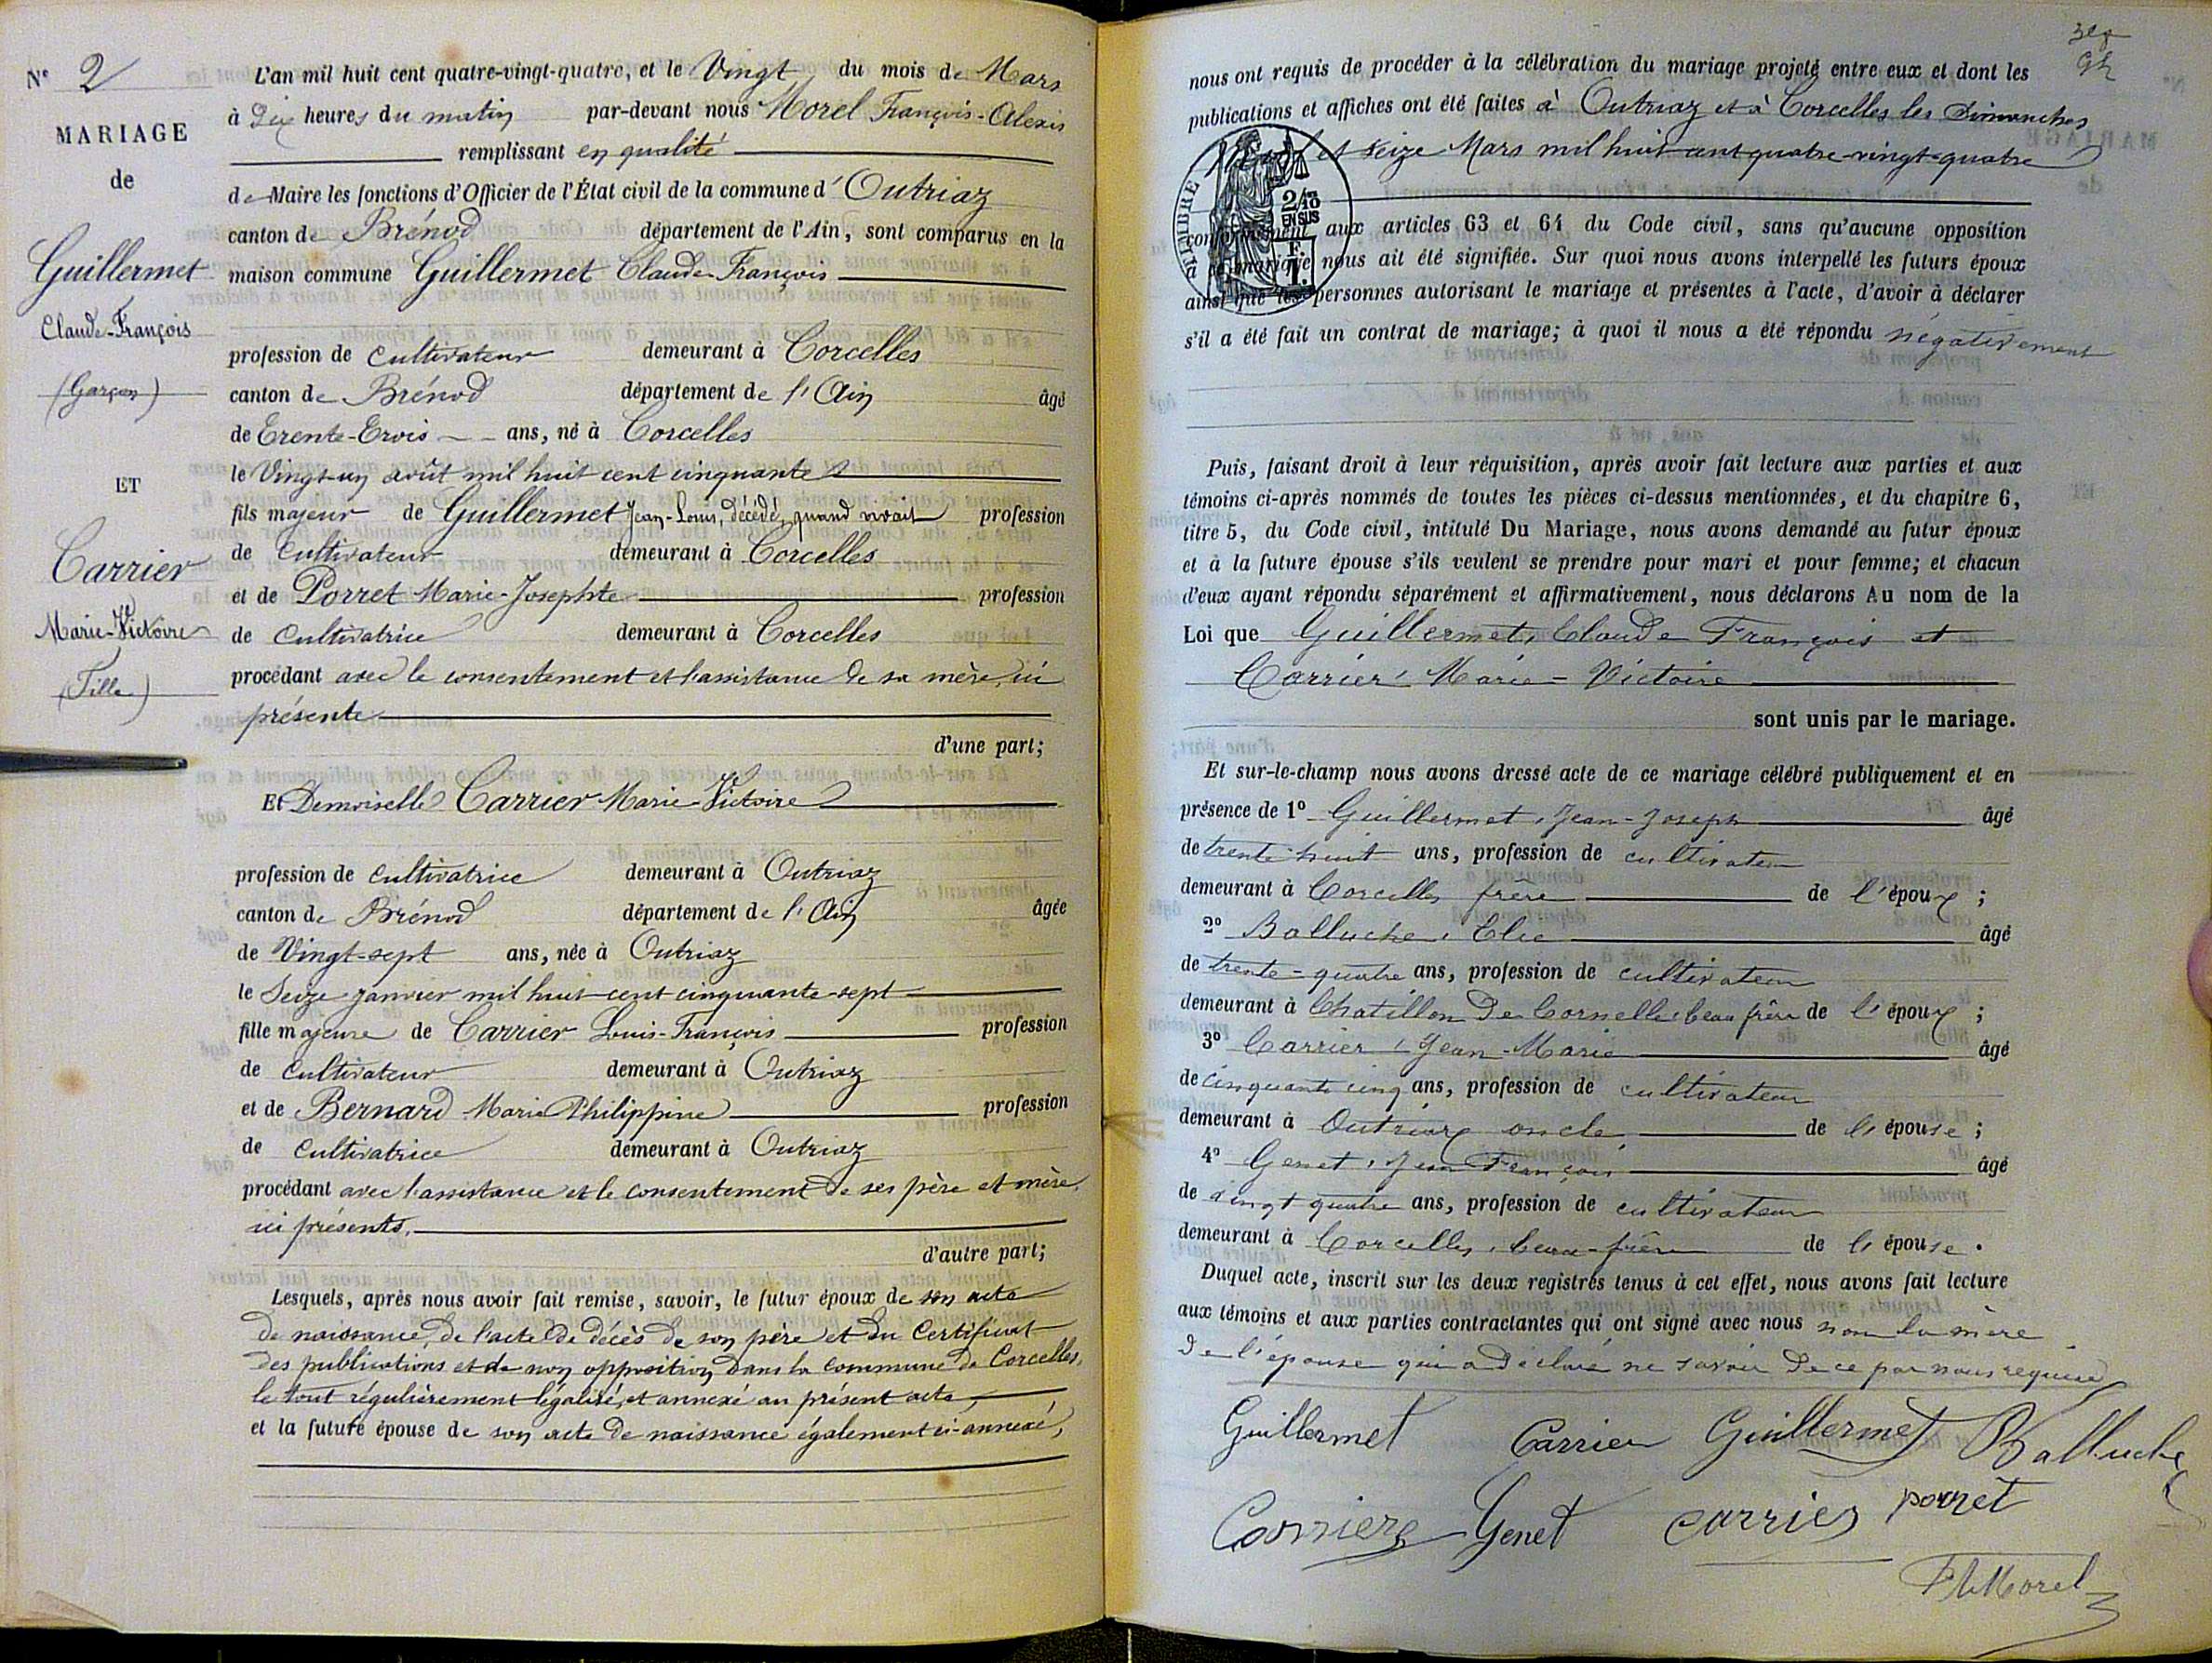 N° 2
MARIAGE
de
Guillermet
Claude-François
(Garçon)
ET
Carrier
Marie-Victoire
(Fille)
L'an mil huit cent quatre-vingt-quatre, et le Vingt du mois de Mars
à Dix heures du matin par-devant nous Morel François-Alexis
remplissant en qualité
de Maire les fonctions d'Officier de l'État civil de la commune d'Outriaz
canton de Brénod département de l'Ain, sont comparus en la
maison commune Guillermet Claude-François
profession de Cultivateur demeurant à Corcelles
canton de Brénod département de l'Ain âgé
de Trente-Trois ans, né à Corcelles
le Vingt-un août mil huit cent cinquante
fils majeur de Guillermet Jean-Louis, décédé, quand vivait profession
de Cultivateur demeurant à Corcelles
et de Porret Marie-Josephte profession
de Cultivatrice demeurant à Corcelles
procédant avec le consentement et l'assistance de sa mère, ici
présente
d'une part;
Et Demoiselle Carrier Marie-Victoire
profession de Cultivatrice demeurant à Outriaz
canton de Brénod département de l'Ain âgée
de Vingt-sept ans, née à Outriaz
le Seize janvier mil huit cent cinquante-sept
fille majeure de Carrier Louis-François profession
de Cultivateur demeurant à Outriaz
et de Bernard Marie Philippine profession
de Cultivatrice demeurant à Outriaz
procédant avec l'assistance et le consentement de ses père et mère,
ici présents.
d'autre part;
Lesquels, après nous avoir fait remise, savoir, le futur époux de son acte
de naissance, de l'acte de décès de son père et du Certificat
des publications et de non opposition dans la commune de Corcelles,
le tout régulièrement légalisé, et annexé au présent acte,
et la future épouse de son acte de naissance également ci-annexé,
nous ont requis de procéder à la célébration du mariage projeté entre eux et dont les
publications et affiches ont été faites à Outriaz et à Corcelles les Dimanches
et seize Mars mil huit cent quatre-vingt-quatre
TIMBRE
2/10 EN SUS
F
1.
conformément aux articles 63 et 64 du Code civil, sans qu'aucune opposition
à ce mariage nous ait été signifiée. Sur quoi nous avons interpellé les futurs époux
ainsi que les personnes autorisant le mariage et présentes à l'acte, d'avoir à déclarer
s'il a été fait un contrat de mariage; à quoi il nous a été répondu négativement
Puis, faisant droit à leur réquisition, après avoir fait lecture aux parties et aux
témoins ci-après nommés de toutes les pièces ci-dessus mentionnées, et du chapitre 6,
titre 5, du Code civil, intitulé Du Mariage, nous avons demandé au futur époux
et à la future épouse s'ils veulent se prendre pour mari et pour femme; et chacun
d'eux ayant répondu séparément et affirmativement, nous déclarons Au nom de la
Loi que Guillermet, Claude François et
Carrier, Marie-Victoire
sont unis par le mariage.
Et sur-le-champ nous avons dressé acte de ce mariage célébré publiquement et en
présence de 1° Guillermet, Jean-Joseph âgé
de trente huit ans, profession de cultivateur
demeurant à Corcelles, frère de l'époux ;
2° Balluche, Elie âgé
de trente-quatre ans, profession de cultivateur
demeurant à Chatillon De Cornelle, beau frère de l'époux ;
3° Carrier, Jean-Marie âgé
de cinquante cinq ans, profession de cultivateur
demeurant à Outriaz oncle de l'épouse ;
4° Genet, Jean François âgé
de vingt quatre ans, profession de cultivateur
demeurant à Corcelles, beau-frère de l'épouse.
Duquel acte, inscrit sur les deux registres tenus à cet effet, nous avons fait lecture
aux témoins et aux parties contractantes qui ont signé avec nous non la mère
De l'épouse qui a déclaré ne savoir De ce par nous requise
Guillermet Carrier Guillermet Balluche
Carrier Genet carrier porret
F A Morel